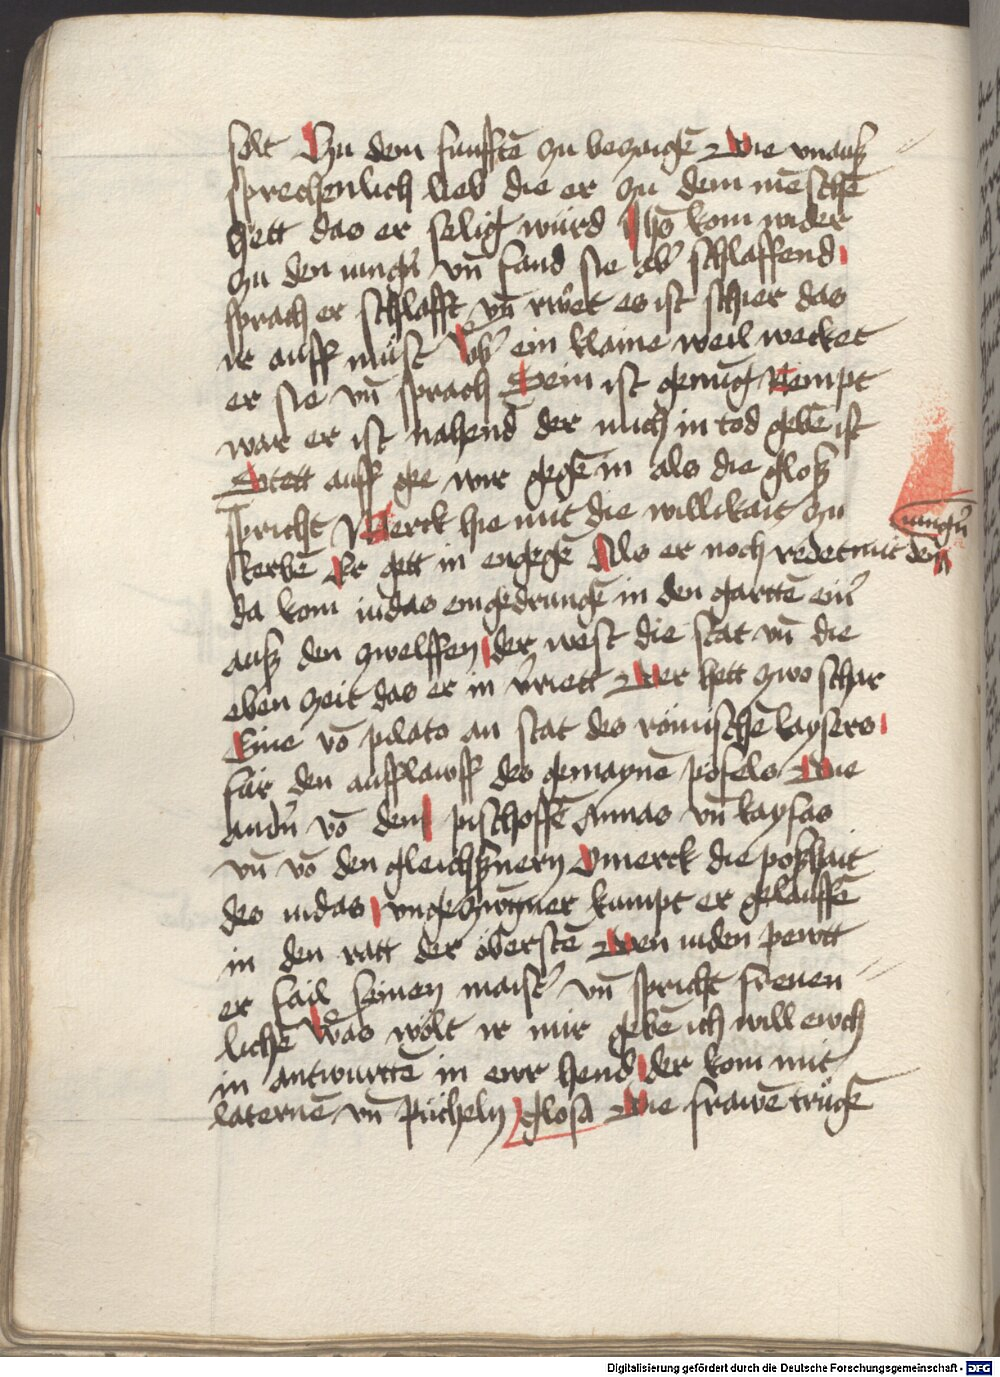 solt Zu dem funfftē zu bezaigē Die vnauß
sprechenlich lieb die er zu dem mēschē
hett das er selig würd Jhs kom wider
zu den iungn̄ vn̄ fand sie ab' schlaffend
sprach er schlafft vn̄ rwet es ist schier das
ir auff müst Vb' ein klaine weil wecket
er sie vn̄ sprach Sein ist genug Nempt
war er ist nahend der mich in tod gebē ist
Stett auff gee wir gegē in als die gloß
spricht Merck hie mit die willikait zu
sterbē Er gett in engegē Als er noch redet mit den
iungn̄
da kom iudas eingedrungē in den gartē ein'
auß den zwelffen der west die stat vn̄ die
eben zeit das er in v'riett Der hett zwo schar
Eine vō pilato an stat des römischē kaysers
für den aufflawff des gemaynē pöfels Die
andn̄ vō dem pischoffē Annas vn̄ kayfas
vn̄ vō den gleichßnern O merck die poßhait
des iudas vngezwūgner kumpt er gelauffē
in den ratt der öberstē Den iuden pewtt
er fail seinen maist' vn̄ spricht freuen
lichē Was wölt ir mir gebē ich will ewch
in antwurttē in ewr hend der kom mit
laternē vn̄ pücheln glosa Die frawē trügē
Digitalisierung gefördert durch die Deutsche Forschungsgemeinschaft - DFG